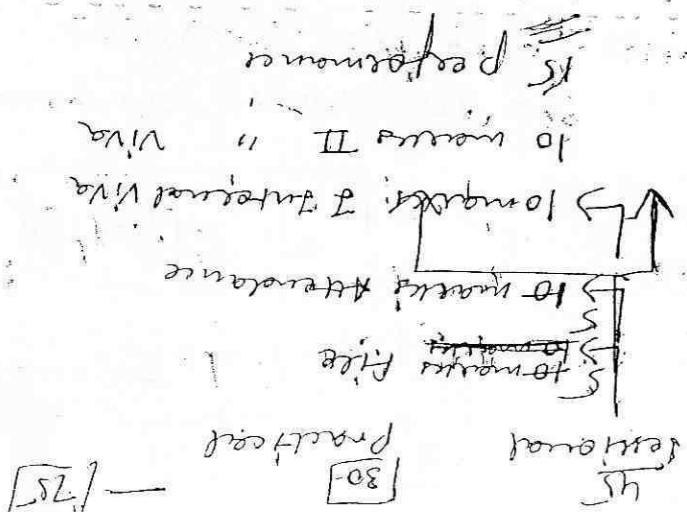 45 30 — 75
Sessional Practical
5 → 10 marks File
10 marks
5 → 10 marks Attendance
→ 10 marks I Internal Viva
10 marks II " Viva
15 performance